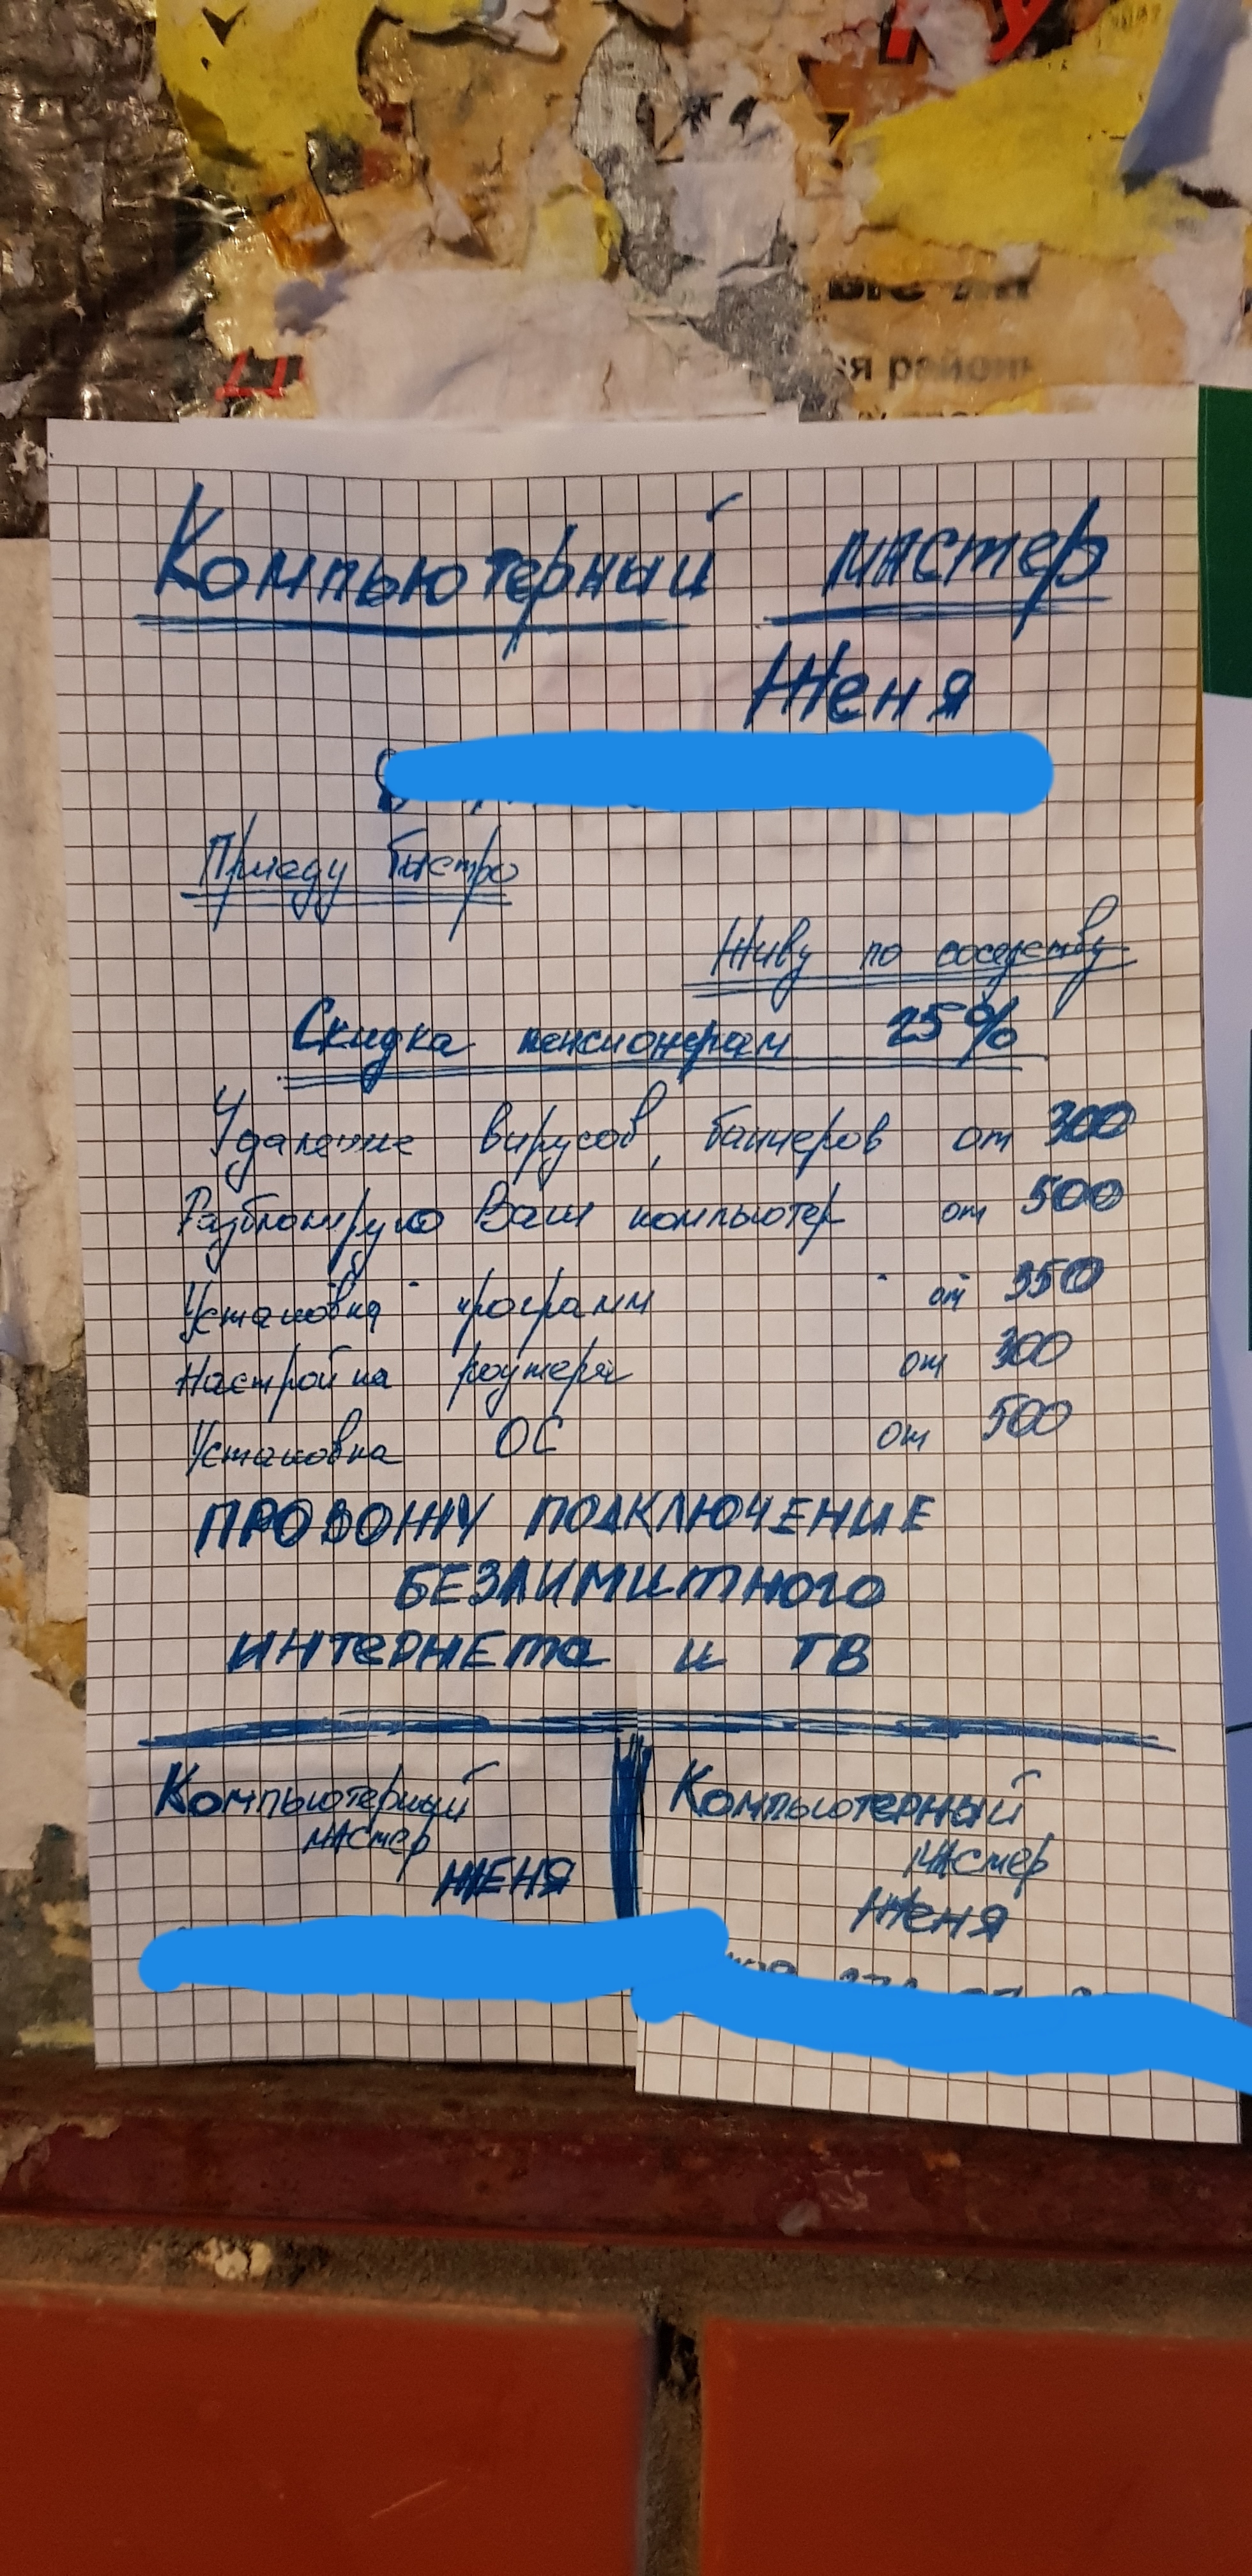 ая район
Компьютерный мастер
Женя
Приеду быстро
Живу по соседству
Скидка пенсионерам 25%
Удаление вирусов, баннеров от 300
Разблокирую Ваш компьютер от 500
Установка программ от 350
Настройка роутера от 300
Установка ОС от 500
ПРОВОЖУ ПОДКЛЮЧЕНИЕ
БЕЗЛИМИТНОГО
ИНТЕРНЕТА и ТВ
Компьютерный
мастер
ЖЕНЯ
Компьютерный
мастер
Женя